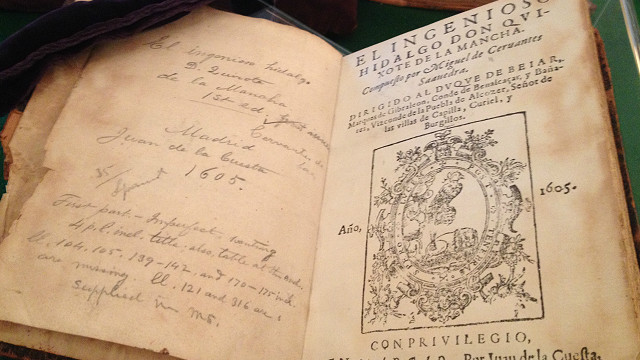 El ingenioso hidalgo
D. Quixote
de la Mancha
1st ed.
Cervantes
Madrid
Juan de la Cuesta
1605.
First part. - Imperfect, wanting
4 p.l. incl. title; also, table at the end.
ll. 104, 105, 139-142, and 170-175
are missing. ll. 121 and 316 are
supplied in ms.
EL INGENIOSO
HIDALGO DON QVI-
XOTE DE LA MANCHA.
Compuesto por Miguel de Ceruantes
Saauedra.
DIRIGIDO AL DVQVE DE BEIAR,
Marques de Gibraleon, Conde de Benalcaçar, y Baña-
res, Vizconde de la Puebla de Alcozer, Señor de
las villas de Capilla, Curiel, y
Burgillos.
Año,
1605.
CON PRIVILEGIO,
Por Iuan de la Cuesta.